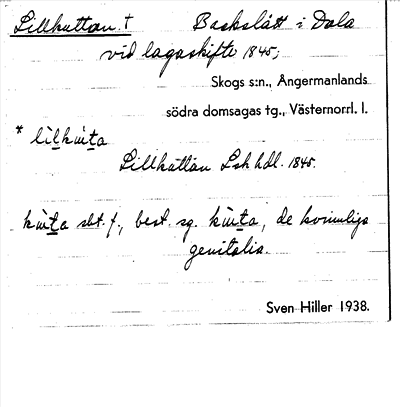 Lillhuttan † Backslått i Dala
vid lagaskifte 1845;
Skogs s:n., Ångermanlands
södra domsagas tg., Västernorrl. l.
* lilkuta
Lillhuttan Lsk hdl. 1845.
kuta sbt. f., best. sg. kuta, de kvinnliga
genitalia.
Sven Hiller 1938.